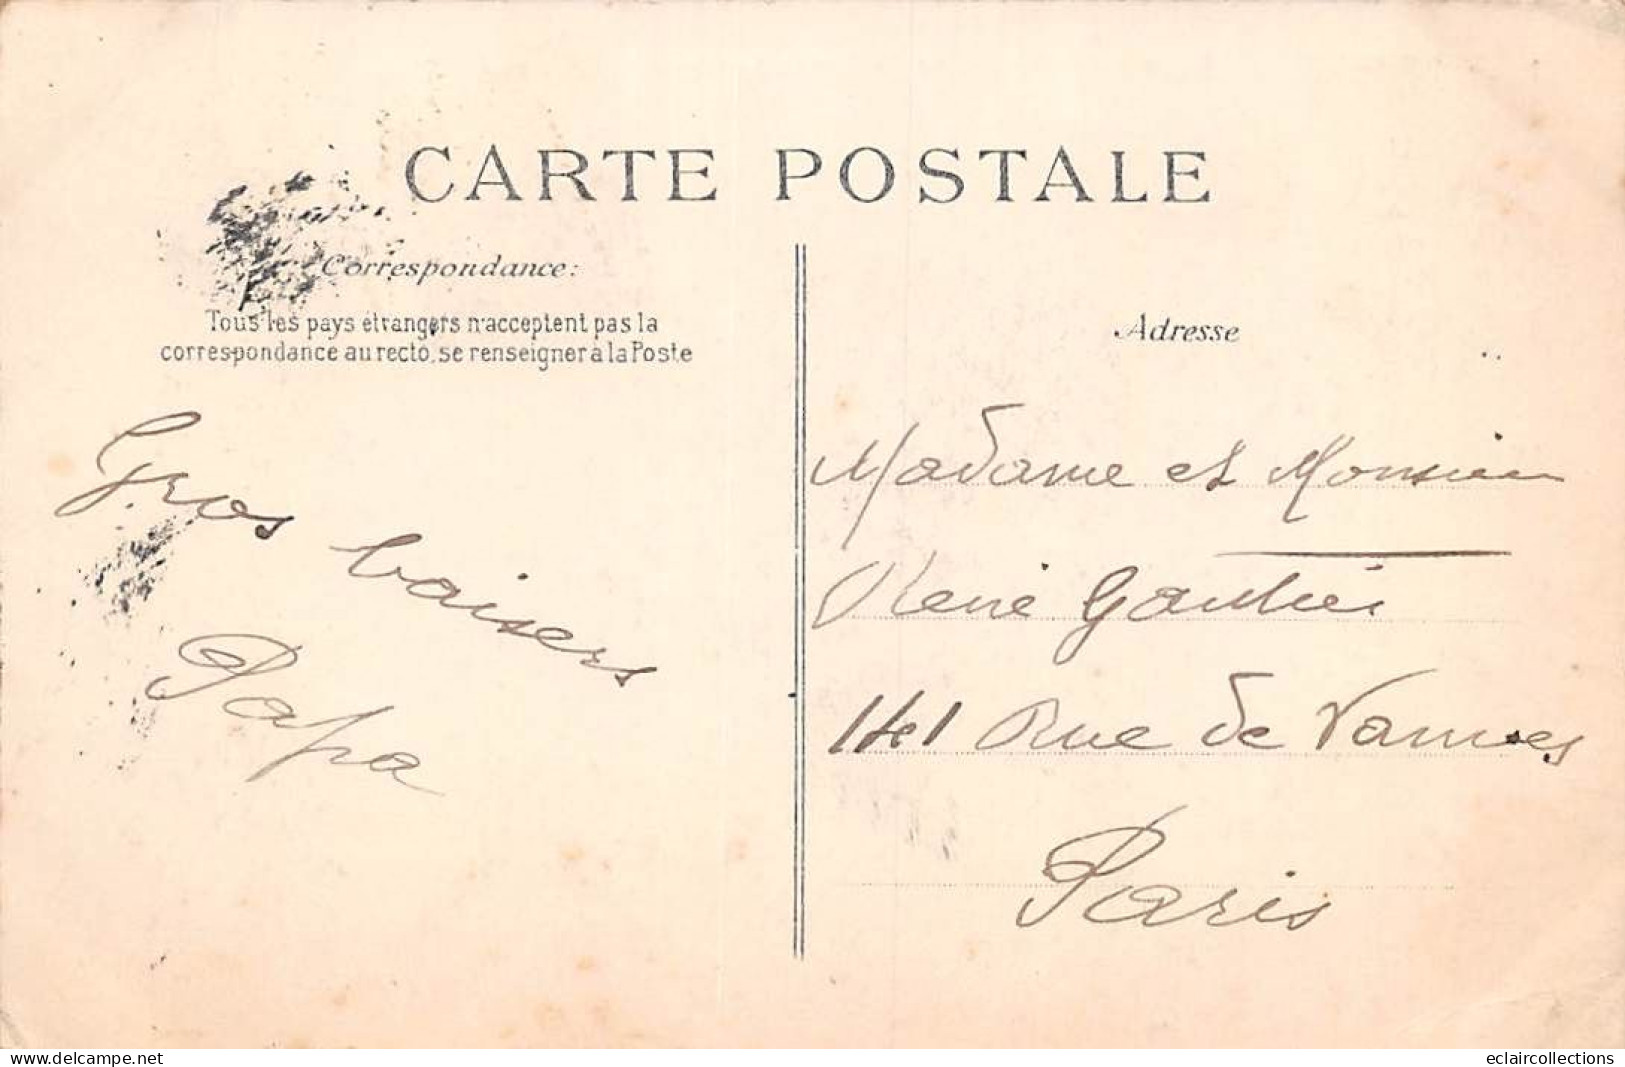 CARTE POSTALE
Correspondance:
Tous les pays étrangers n'acceptent pas la
correspondance au recto, se renseigner à la Poste
Gros baisers
Papa
Adresse
Madame et Monsieur
René Gautier
141 Rue de Vanves
Paris
www.delcampe.net
eclaircollections